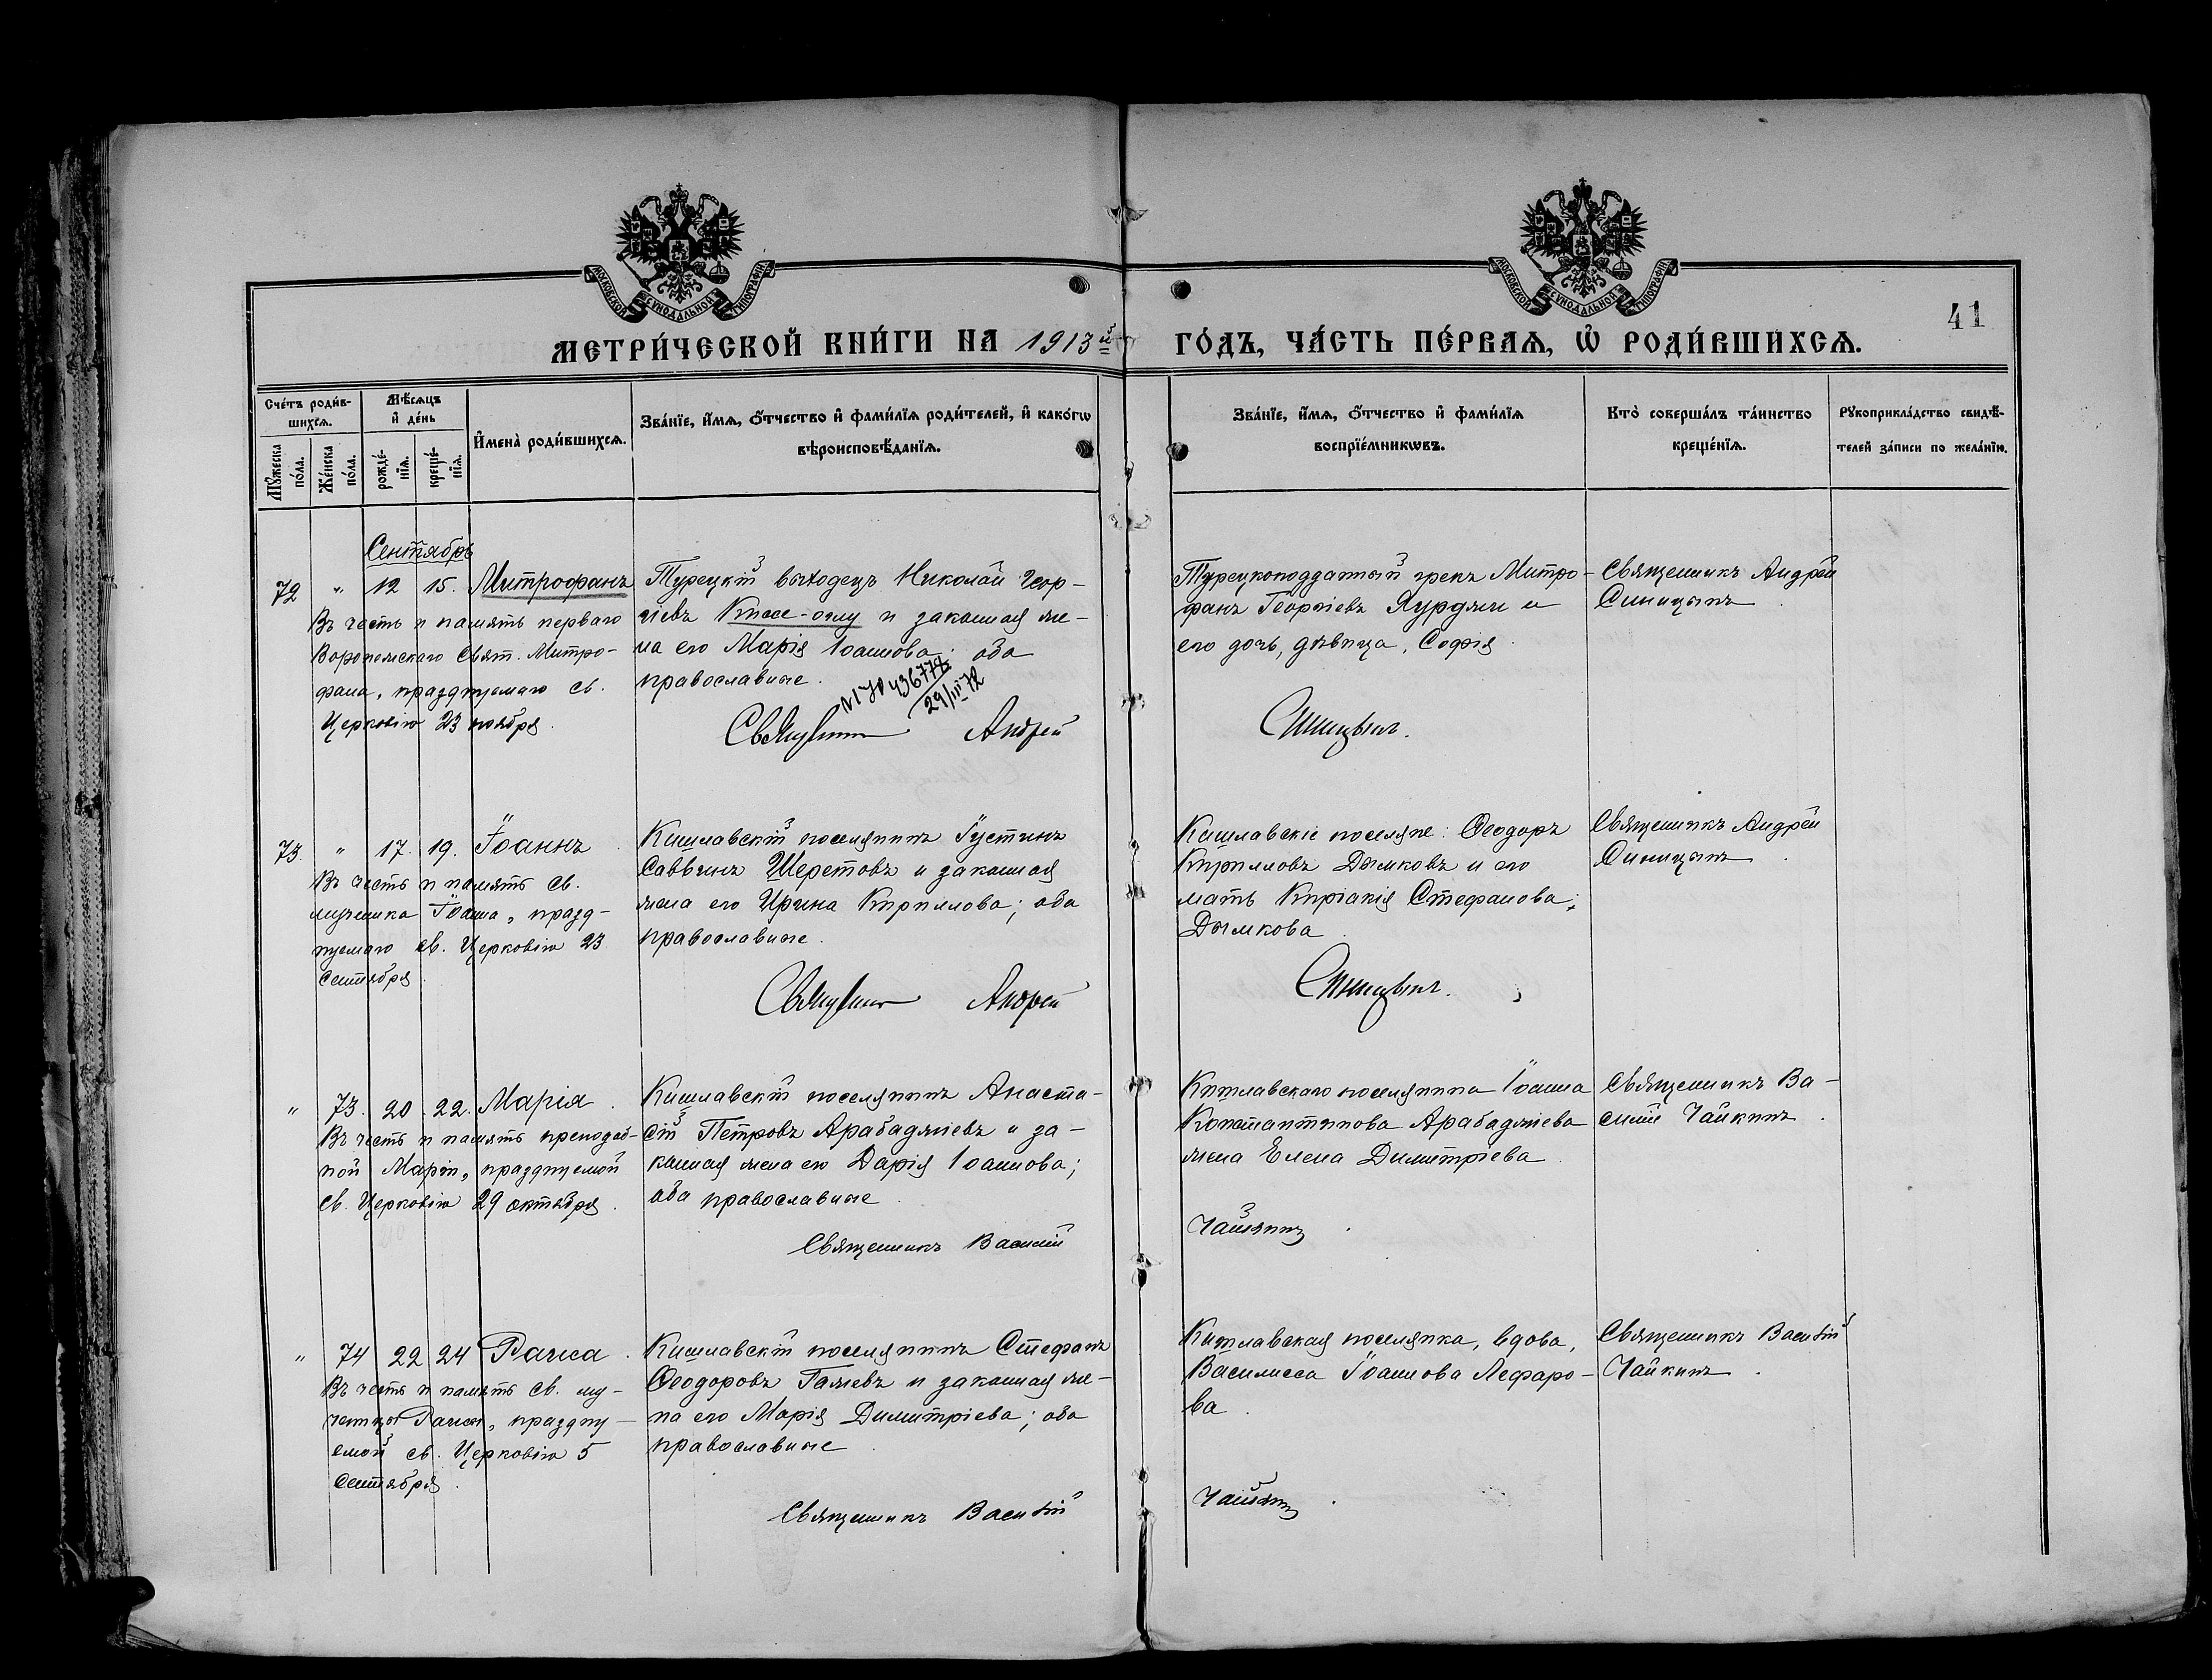 МОСКОВСКОЙ СУНОДАЛЬНОЙ ТИПОГРАФІИ
МОСКОВСКОЙ СУНОДАЛЬНОЙ ТИПОГРАФІИ
41
МЕТРИ́ЧЕСКОЙ КНИ́ГИ НА 1913й ГО́ДЪ, ЧА́СТЬ ПЕ́РВАЯ, Ѽ РОДИ́ВШИХСЯ.
Сче́тъ роди́в-
шихся.
Мѣ́сяцъ
и҆ де́нь
Му́жеска
по́ла.
Же́нска
по́ла.
рожде́-
нїя.
креще́-
нїя.
И҆мена̀ роди́вшихся.
Зва́нїе, и҆́мя, ѻ҆́тчество и҆ фами́лїя роди́телей, и҆ како́гѡ
вѣроисповѣ́данїя.
Зва́нїе, и҆́мя, ѻ҆́тчество и҆ фами́лїя
воспрїе́мникѡвъ.
Кто̀ соверша́лъ та́инство
креще́нїя.
Рукоприкла́дство свидѣ́-
телей за́писи по жела́нїю.
Сентябрь
72 " 12 15. Митрофанъ
Въ честь и память перваго
Воронежскаго Свят. Митро-
фана, празднуемаго св.
Церковію 23 ноября.
Турецкій выходецъ Николай Геор-
гіевъ и законная же-
на его Марія Іоаннова; оба
православные.
29/III 72
Священникъ Андрей
Турецкоподданный грекъ Митро-
фанъ Георгіевъ и
его дочь, дѣвица, Софія.
Синицынъ.
Священникъ Андрей
Синицынъ.
73. " 17. 19. Іоаннъ.
Въ честь и память св.
мученика Іоанна, празд-
нуемаго св. Церковію 23
сентября.
Кишлавскій поселянинъ Іустинъ
Саввинъ Шеретовъ и законная
жена его Ирина Кириллова; оба
православные.
Священникъ Андрей
Кишлавскіе поселяне: Ѳеодоръ
Кирилловъ Дымковъ и его
мать Киріакія Стефанова
Дымкова.
Синицынъ.
Священникъ Андрей
Синицынъ.
" 73. 20. 22. Марія.
Въ честь и память преподоб-
ной Маріи, празднуемой
св. Церковію 29 октября.
Кишлавскій поселянинъ Анаста-
сій Петровъ Арабаджіевъ и за-
конная жена его Дарія Іоаннова;
оба православные.
Священникъ Василій
Кишлавскаго поселянина Іоанна
Константинова Арабаджіева
жена Елена Димитріева.
Чайкинъ.
Священникъ Ва-
силій Чайкинъ.
" 74 22 24 Раиса.
Въ честь и память св. му-
ченицы Раисы, праздну-
емой св. Церковію 5
сентября.
Кишлавскій поселянинъ Стефанъ
Ѳеодоровъ Гажевъ и законная же-
на его Марія Димитріева; оба
православные.
Священникъ Василій
Кишлавская поселянка, вдова,
Василисса Іоаннова Лефаро-
ва.
Чайкинъ.
Священникъ Василій
Чайкинъ.